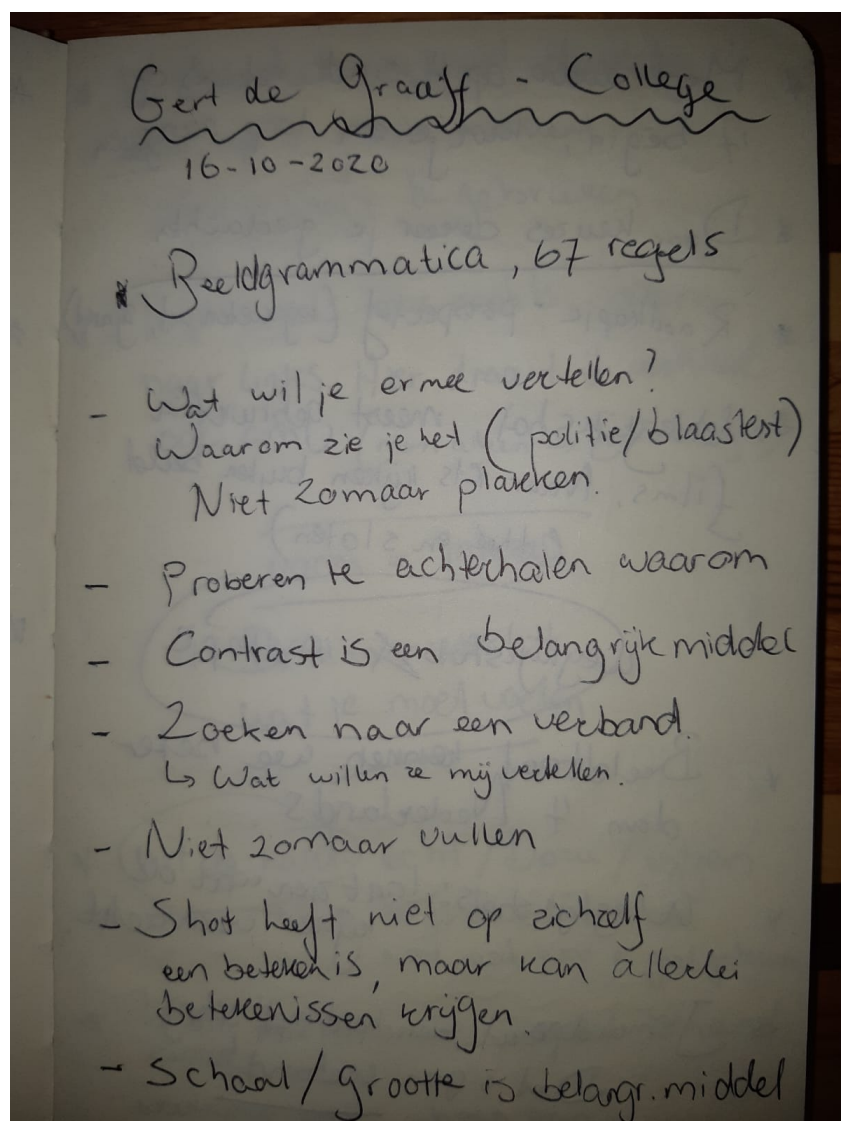 Gert de Graaff - College
16-10-2020
Beeldgrammatica, 67 regels
- Wat wil je ermee vertellen?
Waarom zie je het (politie/blaastest)
Niet zomaar plakken.
- Proberen te achterhalen waarom
- Contrast is een belangrijk middel
- Zoeken naar een verband.
↳ Wat willen ze mij vertellen.
- Niet zomaar vullen
- Shot heeft niet op zichzelf
een betekenis, maar kan allerlei
betekenissen krijgen.
- Schaal/grootte is belangr. middel